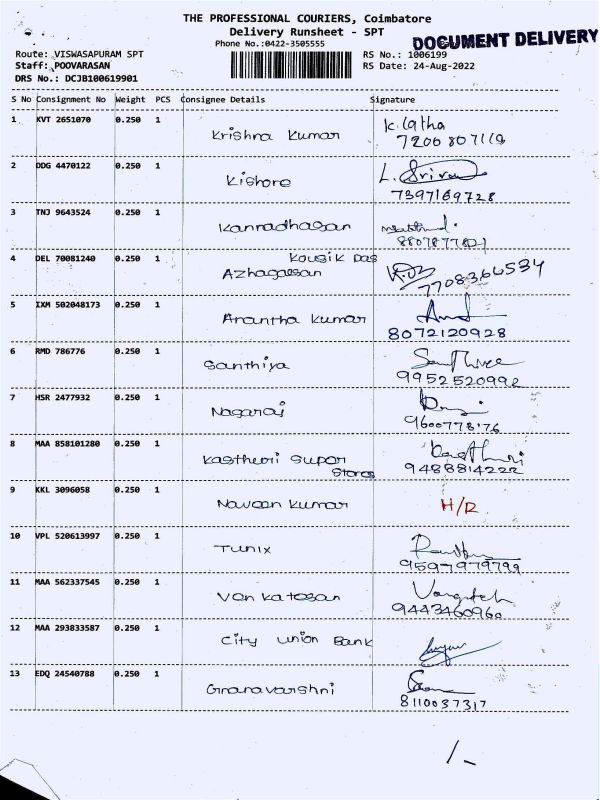 THE PROFESSIONAL COURIERS, Coimbatore
Delivery Runsheet - SPT
Phone No.:0422-3505555
DOCUMENT DELIVERY
Route: VISWASAPURAM SPT
RS No.: 1006199
Staff: POOVARASAN
RS Date: 24-Aug-2022
DRS No.: DCJB100619901
S No Consignment No Weight PCS Consignee Details Signature
1 KVT 2651070 0.250 1 Krishna Kumar K. Latha
7200807119
2 DDG 4470122 0.250 1 Kishore
7397169728
3 TNJ 9643524 0.250 1 Kannadhasan
4 DEL 70081240 0.250 1 Kousik Das
Azhagaesan 7708366534
5 IXM 502048173 0.250 1 Anantha Kumar
8072120928
6 RMD 786776 0.250 1 Santhiya
9952520992
7 HSR 2477932 0.250 1 Nagaraj
9600778176
8 MAA 858101280 0.250 1 Kastheori Super Kasthuri
Stores 9488814222
9 KKL 3096058 0.250 1 Naveen Kumar H/R
10 VPL 520613997 0.250 1 Tunix
9597979799
11 MAA 562337545 0.250 1 Venkatesan
9443460960
12 MAA 293833587 0.250 1 City Union Bank
13 EDQ 24540788 0.250 1 Gnanavarshni
8110037317
1/-